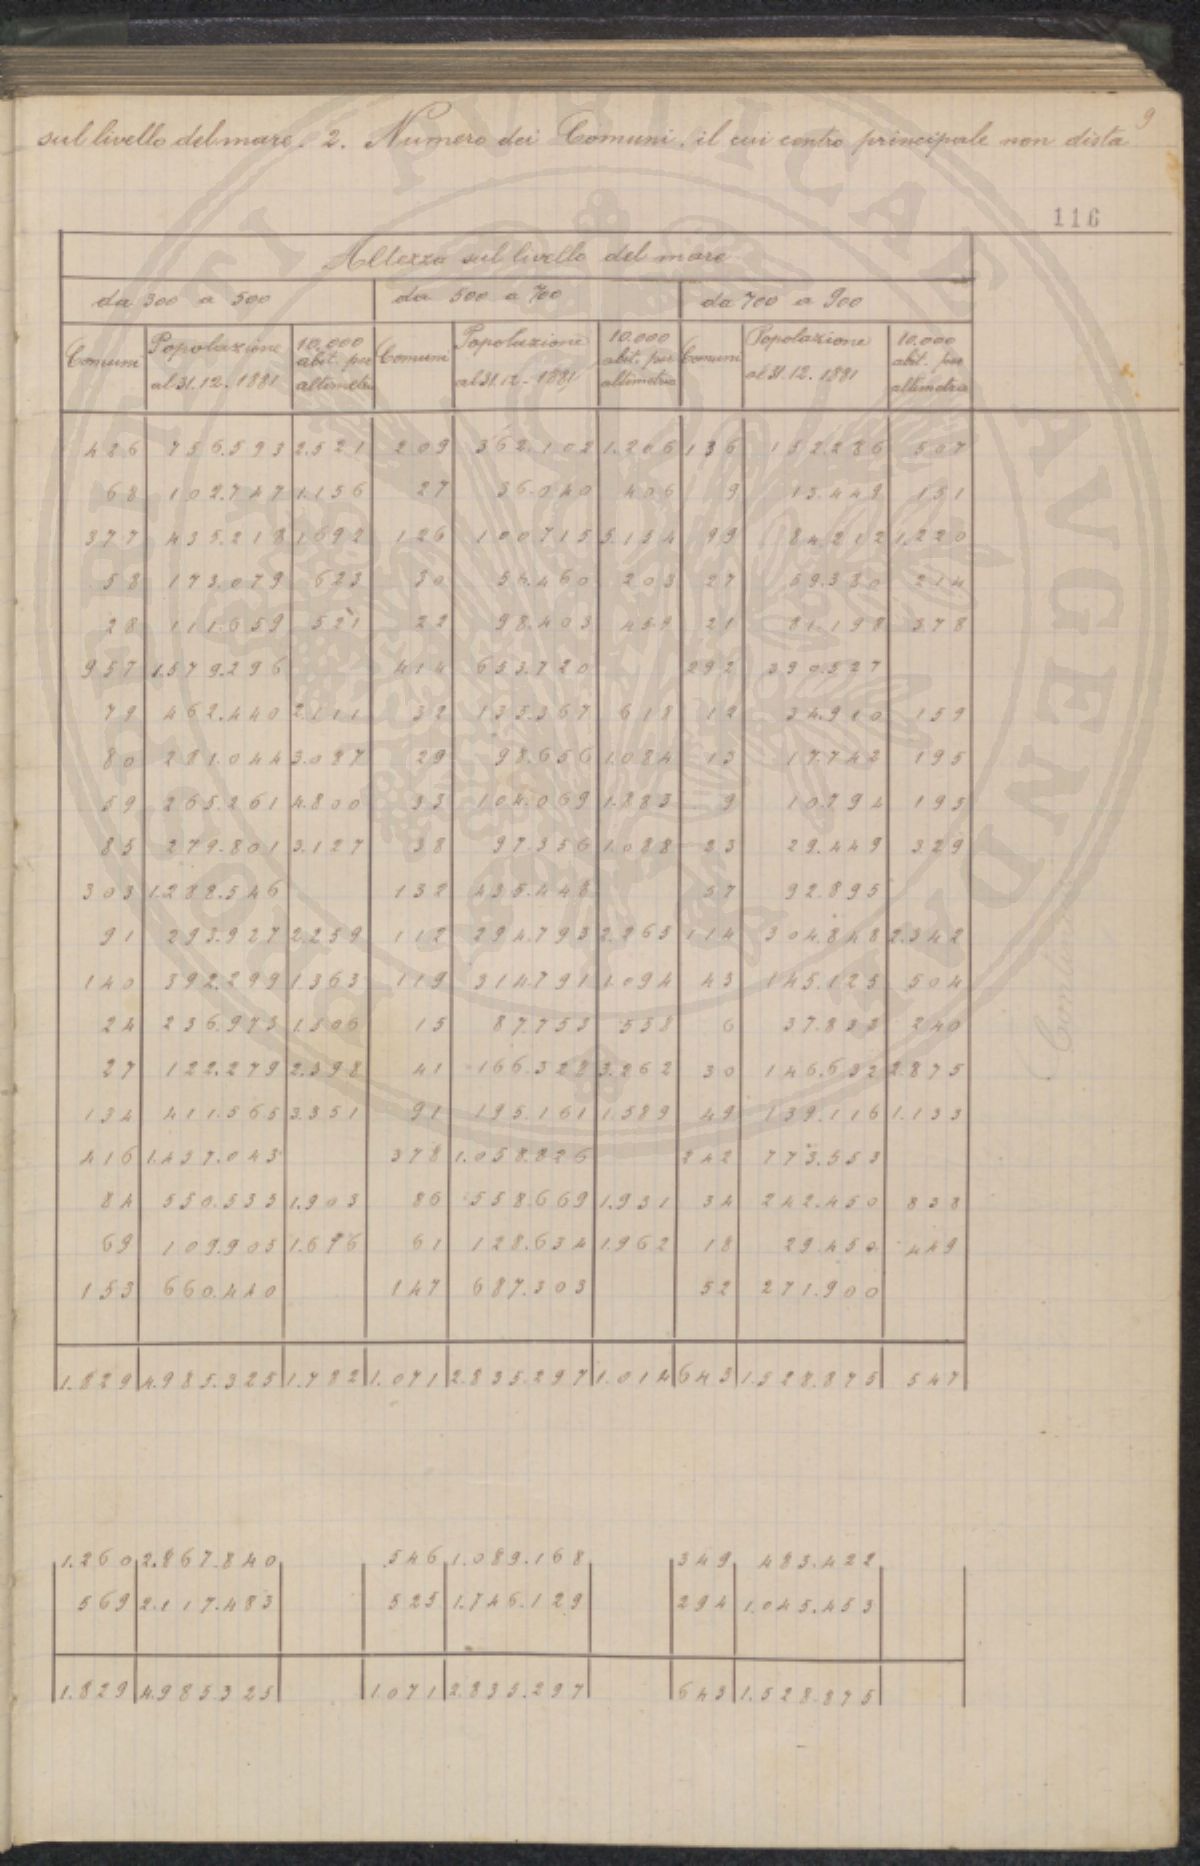 9
sul livello del mare. 2. Numero dei Comuni, il cui centro principale non dista
116
Altezza sul livello del mare
da 300 a 500 da 500 a 700 da 700 a 900
Comuni Popolazione al 31.12.1881 10.000 abit. per altimetria Comuni Popolazione al 31.12.1881 10.000 abit. per altimetria Comuni Popolazione al 31.12.1881 10.000 abit. per altimetria
426 756.593 2.521 209 362.102 1.206 136 152.286 507
68 102.747 1.156 27 36.040 406 9 13.449 151
377 435.218 1.692 126 100.715 5.154 99 84.212 1.220
58 173.079 623 30 56.460 203 27 59.380 214
28 111.659 521 22 98.403 459 21 81.198 378
957 1.579.296 414 653.720 292 390.527
79 462.440 2.111 32 135.367 618 12 34.910 159
80 281.044 3.087 29 98.656 1.084 13 17.742 195
59 265.261 4.800 33 104.069 1.883 9 10.794 195
85 279.801 3.127 38 97.356 1.088 23 29.449 329
303 1.288.546 132 435.448 57 92.895
91 293.927 2.259 112 294.793 2.265 114 304.848 2.342
140 392.299 1.363 119 314.791 1.094 43 145.125 504
24 236.973 1.506 15 87.753 558 6 37.832 240
27 122.279 2.398 41 166.328 3.262 30 146.632 2.875
134 411.565 3.351 91 195.161 1.589 49 139.116 1.133
416 1.437.043 378 1.058.826 242 773.553
84 550.535 1.903 86 558.669 1.931 34 242.450 838
69 109.905 1.676 61 128.634 1.962 18 29.450 449
153 660.440 147 687.303 52 271.900
1.829 4.985.325 1.782 1.071 2.835.297 1.014 643 1.528.875 547
1.260 2.867.840 546 1.089.168 349 483.422
569 2.117.483 525 1.746.129 294 1.045.453
1.829 4.985.325 1.071 2.835.297 643 1.528.875